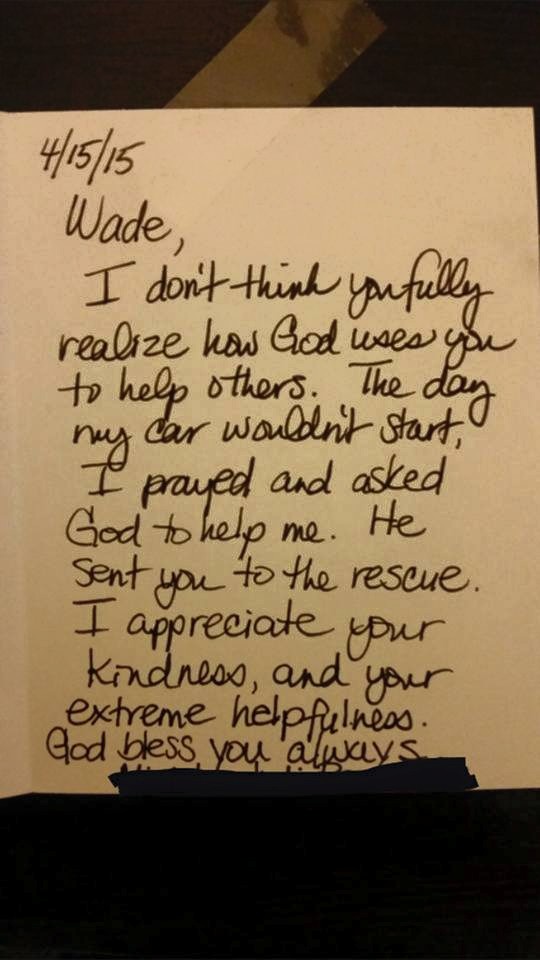 4/15/15
Wade,
I don't think you fully
realize how God uses you
to help others. The day
my car wouldn't start,
I prayed and asked
God to help me. He
sent you to the rescue.
I appreciate your
kindness, and your
extreme helpfulness.
God bless you always